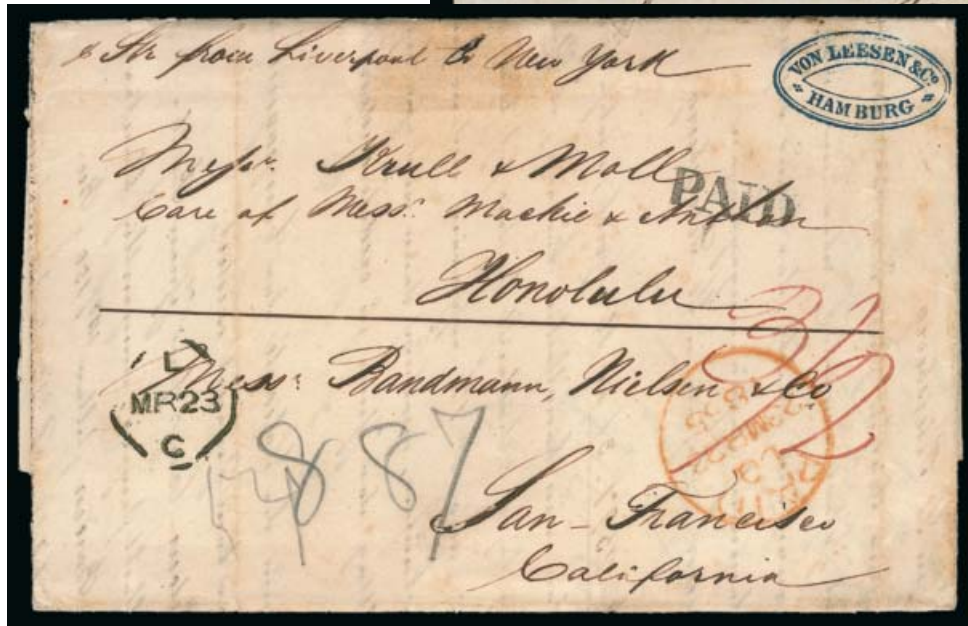 pr Str from Liverpool to New York
VON LEESEN & Co
HAMBURG
Messrs. Krull & Moll
PAID
Care of Messrs. Mackie &
Honolulu
L
MR23
C
Messrs: Bandmann, Nielsen & Co
PAID
887
San-Francisco
California